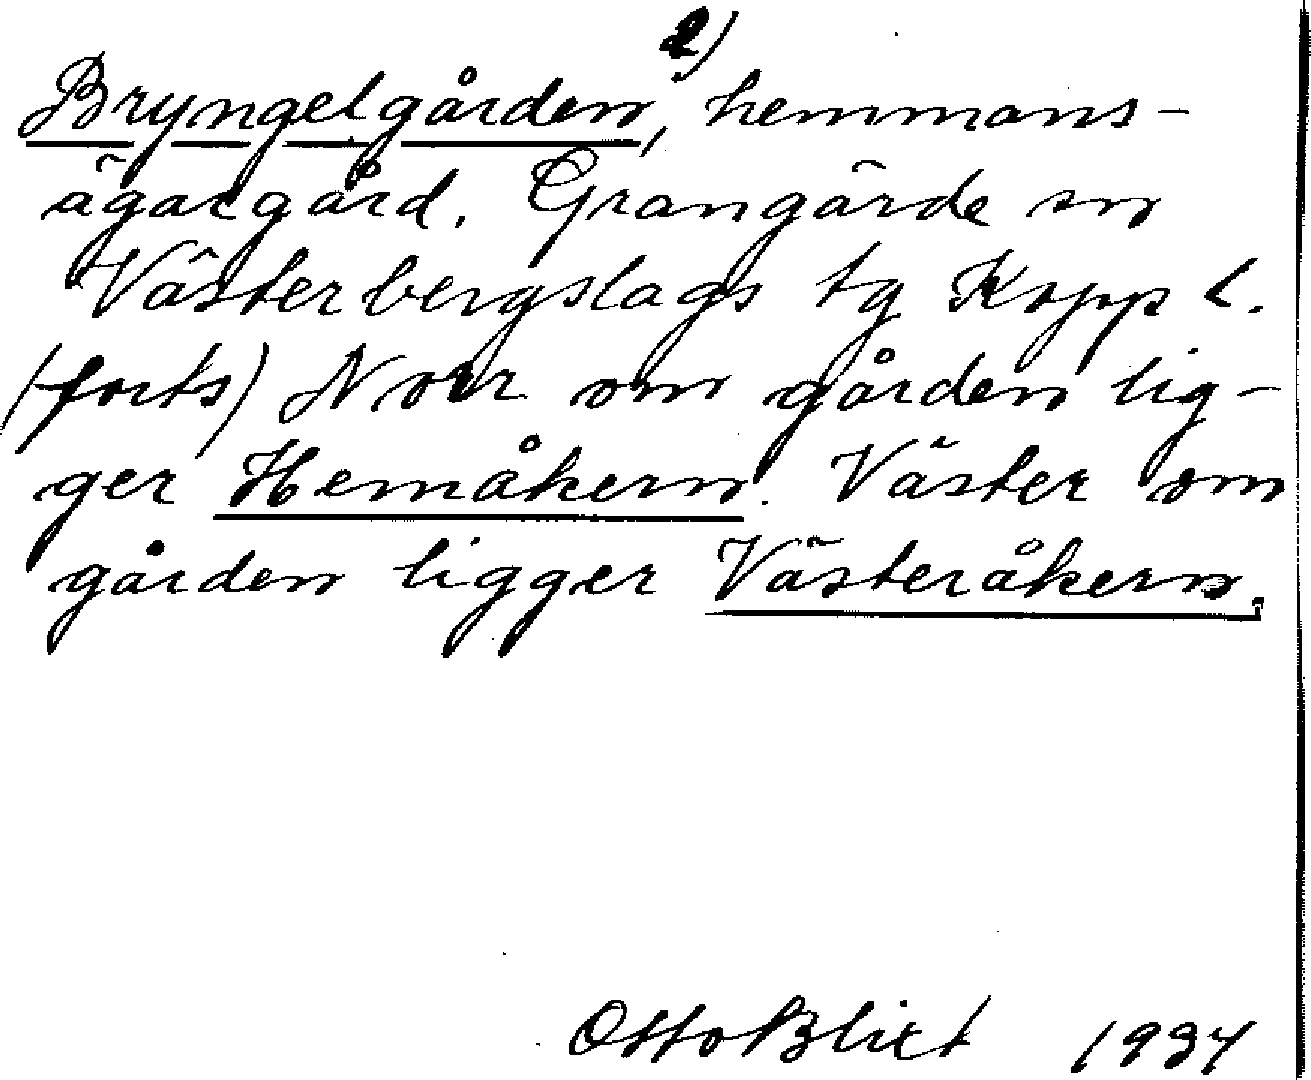 2)
Bryngelgården, hemmans-
ägargård. Grangärde sn
Västerbergslags tg Kopp l.
(forts) Norr om gården lig-
ger Hemåkern. Väster om
gården ligger Västeråkern.
Otto Blixt 1934